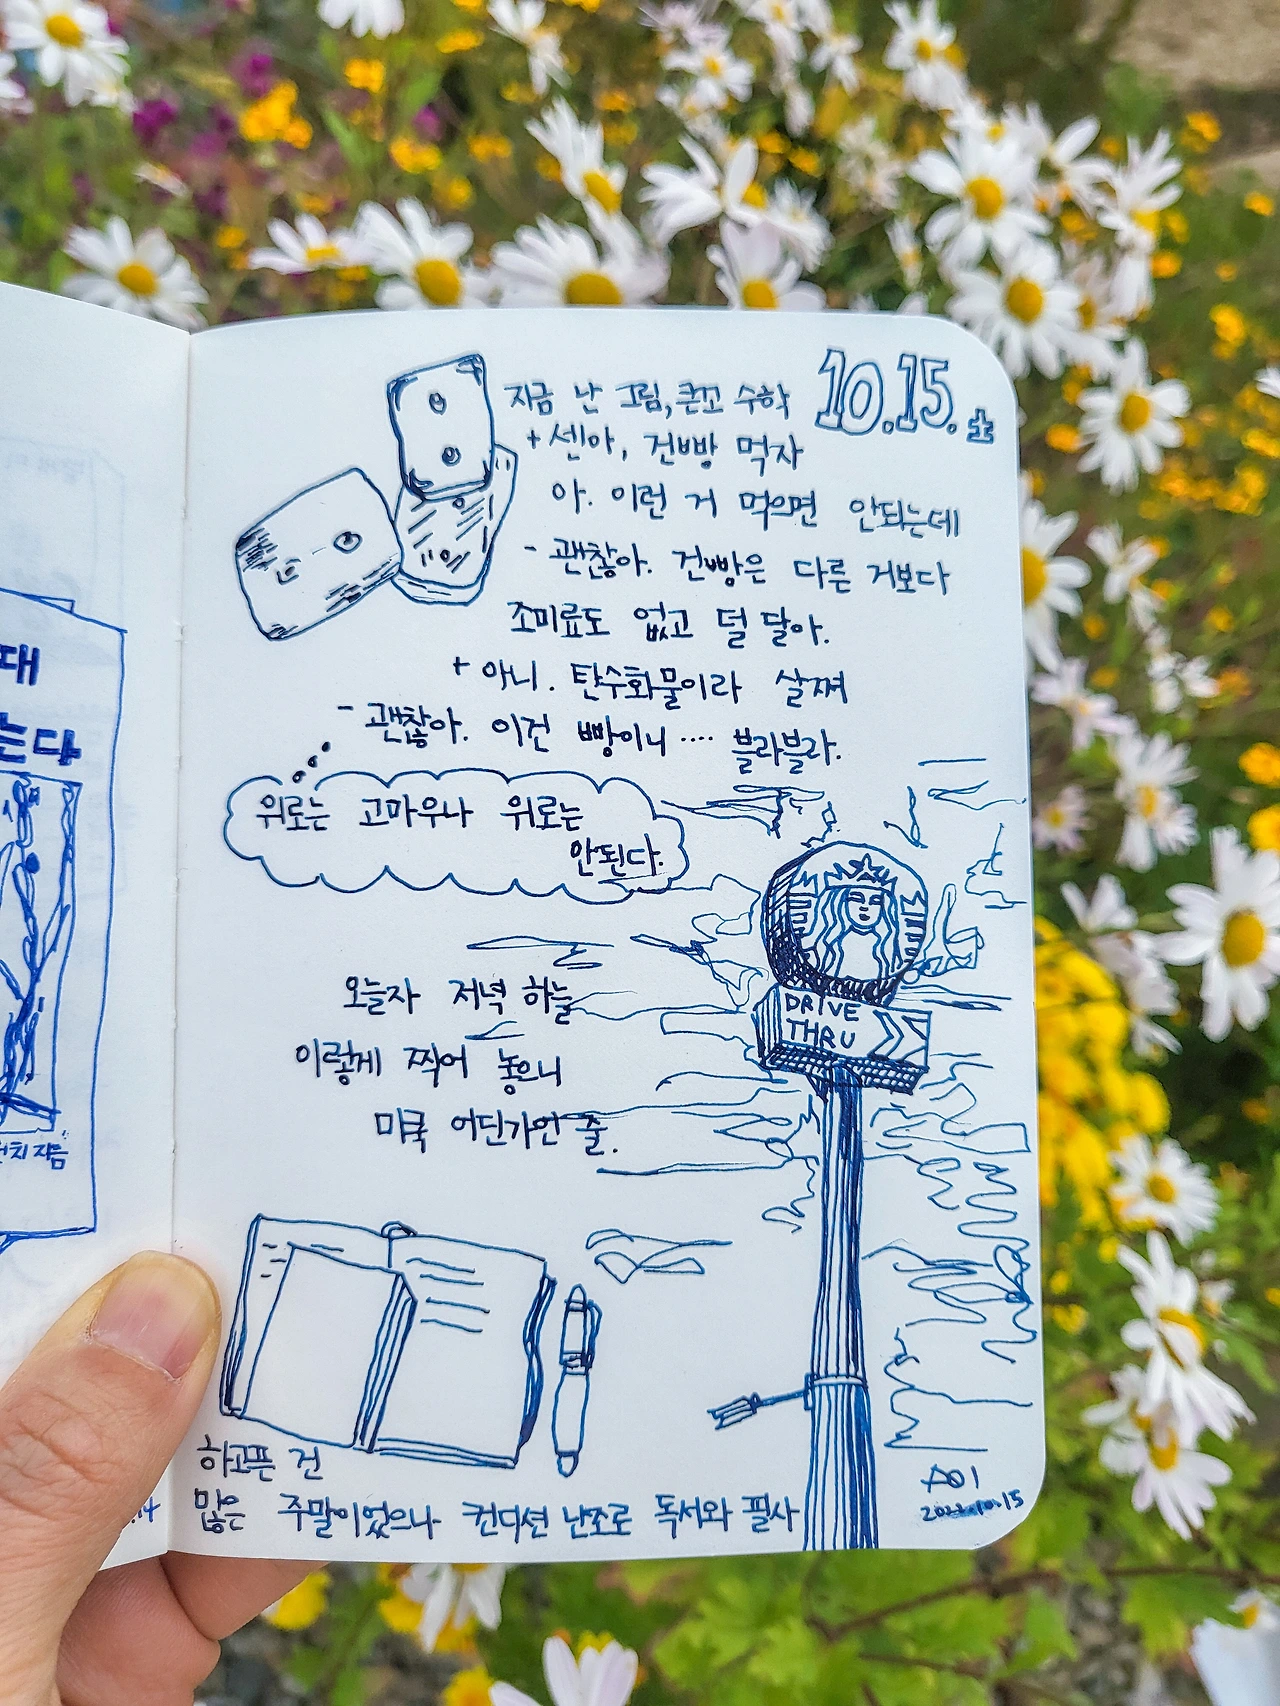 대
는다
지금
10.15.토
지금 난 그림, 큰꼬 수학
+ 센아, 건빵 먹자
아. 이런 거 먹으면 안되는데
- 괜찮아. 건빵은 다른 거보다
조미료도 없고 덜 달아.
+ 아니. 탄수화물이라 살쪄
- 괜찮아. 이건 빵이니···· 블라블라.
위로는 고마우나 위로는
안된다.
DRIVE
THRU
오늘자 저녁 하늘
이렇게 찍어 놓으니
미국 어딘가인 줄.
하고픈 건
많은 주말이었으나 컨디션 난조로 독서와 필사
2022.10.15